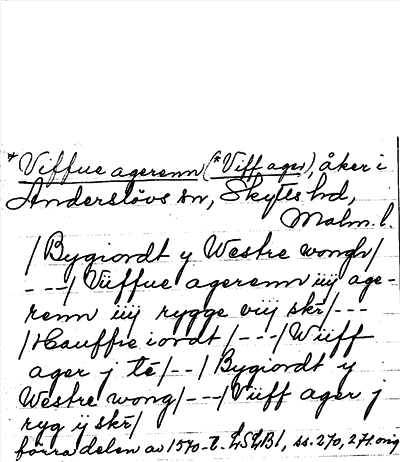 *Viffue agerenn (*Viff ager), åker i
Anderslövs sn, Skytts hd,
Malm. l.
/Bygiordt y Westre wongh/
---/Viiffue agerenn iiij age-
renn iiij rygge viij skr/---
/Hauffre iordt/---/Wiiff
ager j té/--/Bygiordt y
Westre wong/---/Viiff ager j
ryg ij skr/
förra delen av 1570-t. LSLB1, ss. 270, 271. orig